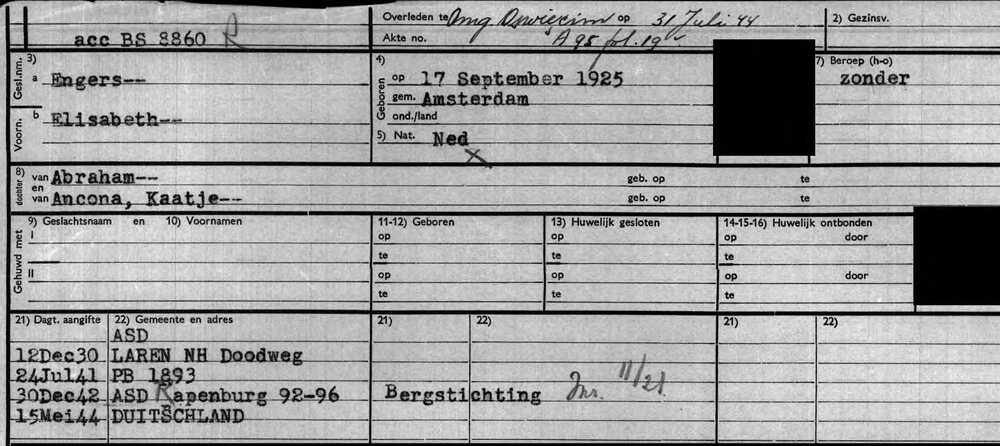 Overleden te Omg Oswiecim op 31 Juli 44
2) Gezinsv.
acc BS 8860 R
Akte no. A 95 fol. 19
Gesl.nm. 3) a Engers--
Voorn. b Elisabeth--
4) Geboren op 17 September 1925
gem. Amsterdam
ond./land
5) Nat. Ned
x
7) Beroep (h-o)
zonder
8) dochter van Abraham-- geb. op te
en
van Ancona, Kaatje-- geb. op te
Gehuwd met 9) Geslachtsnaam en 10) Voornamen 11-12) Geboren 13) Huwelijk gesloten 14-15-16) Huwelijk ontbonden
I op op op door
te te te
II op op op door
te te te
21) Dagt. aangifte 22) Gemeente en adres 21) 22) 21) 22)
ASD
12Dec30 LAREN NH Doodweg
24Jul41 PB 1893
30Dec42 ASD Rapenburg 92-96 Bergstichting 11/21
15Mei44 DUITSCHLAND